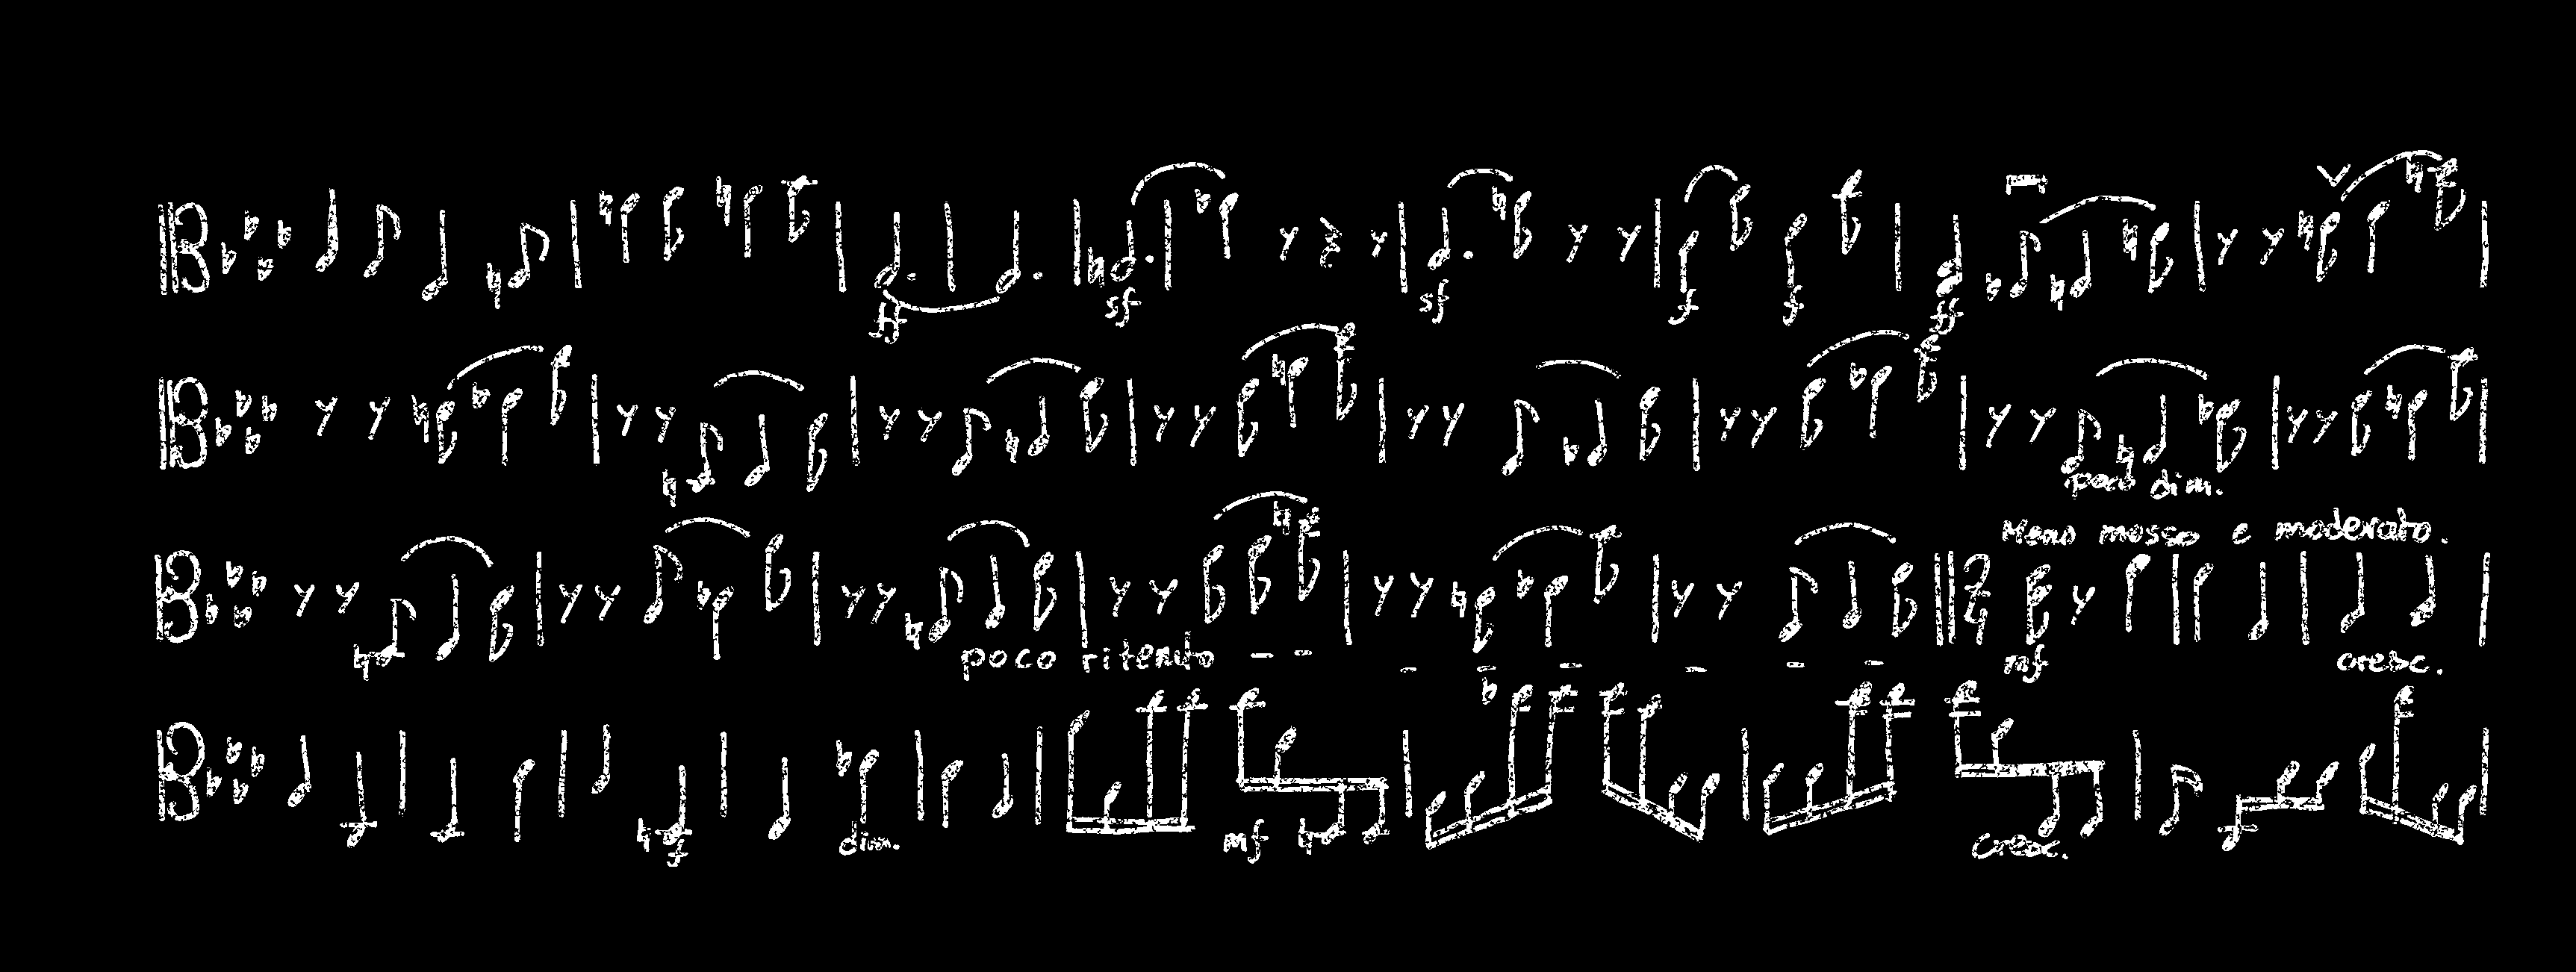 ff sf sf f f ff
poco dim.
Meno mosso e moderato.
poco ritenuto mf cresc.
f dim. mf cresc.